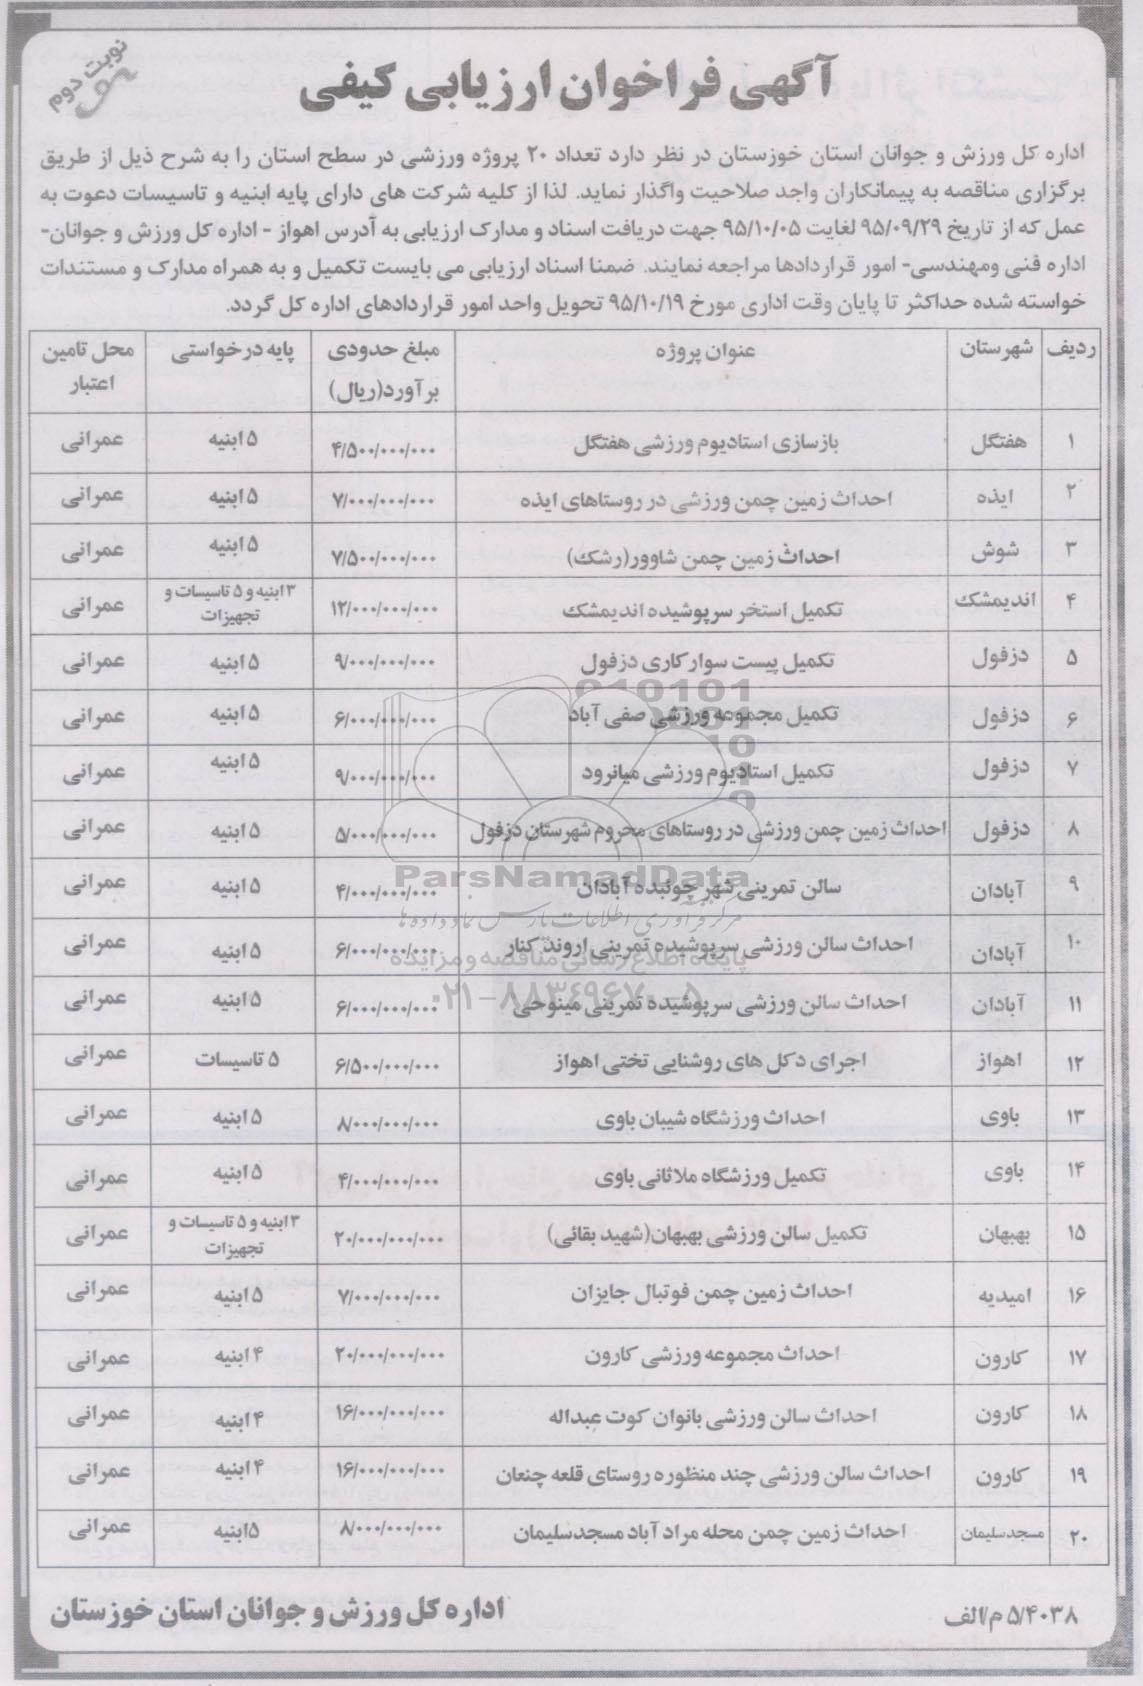 نوبت دوم
آگهی فراخوان ارزیابی کیفی
اداره کل ورزش و جوانان استان خوزستان در نظر دارد تعداد ۲۰ پروژه ورزشی در سطح استان را به شرح ذیل از طریق
برگزاری مناقصه به پیمانکاران واجد صلاحیت واگذار نماید. لذا از کلیه شرکت های دارای پایه ابنیه و تاسیسات دعوت به
عمل که از تاریخ ۹۵/۰۹/۲۹ لغایت ۹۵/۱۰/۰۵ جهت دریافت اسناد و مدارک ارزیابی به آدرس اهواز - اداره کل ورزش و جوانان-
اداره فنی ومهندسی- امور قراردادها مراجعه نمایند. ضمنا اسناد ارزیابی می بایست تکمیل و به همراه مدارک و مستندات
خواسته شده حداکثر تا پایان وقت اداری مورخ ۹۵/۱۰/۱۹ تحویل واحد امور قراردادهای اداره کل گردد.
ردیف شهرستان عنوان پروژه مبلغ حدودی برآورد(ریال) پایه درخواستی محل تامین اعتبار
۱ هفتگل بازسازی استادیوم ورزشی هفتگل ۴/۵۰۰/۰۰۰/۰۰۰ ۵ ابنیه عمرانی
۲ ایذه احداث زمین چمن ورزشی در روستاهای ایذه ۷/۰۰۰/۰۰۰/۰۰۰ ۵ ابنیه عمرانی
۳ شوش احداث زمین چمن شاوور(رشک) ۷/۵۰۰/۰۰۰/۰۰۰ ۵ ابنیه عمرانی
۴ اندیمشک تکمیل استخر سرپوشیده اندیمشک ۱۲/۰۰۰/۰۰۰/۰۰۰ ۳ ابنیه و ۵ تاسیسات و تجهیزات عمرانی
۵ دزفول تکمیل پیست سوارکاری دزفول ۹/۰۰۰/۰۰۰/۰۰۰ ۵ ابنیه عمرانی
۶ دزفول تکمیل مجموعه ورزشی صفی آباد ۶/۰۰۰/۰۰۰/۰۰۰ ۵ ابنیه عمرانی
۷ دزفول تکمیل استادیوم ورزشی میانرود ۹/۰۰۰/۰۰۰/۰۰۰ ۵ ابنیه عمرانی
۸ دزفول احداث زمین چمن ورزشی در روستاهای محروم شهرستان دزفول ۵/۰۰۰/۰۰۰/۰۰۰ ۵ ابنیه عمرانی
۹ آبادان سالن تمرینی شهر چوئبده آبادان ۴/۰۰۰/۰۰۰/۰۰۰ ۵ ابنیه عمرانی
ParsNamadData
مرکز فرآوری اطلاعات پارس نماد داده ها
۱۰ آبادان احداث سالن ورزشی سرپوشیده تمرینی اروند کنار ۶/۰۰۰/۰۰۰/۰۰۰ ۵ ابنیه عمرانی
پایگاه اطلاع رسانی مناقصه و مزایده
۱۱ آبادان احداث سالن ورزشی سرپوشیده تمرینی مینوحی ۶/۰۰۰/۰۰۰/۰۰۰ ۵ ابنیه عمرانی
۱۲ اهواز اجرای دکل های روشنایی تختی اهواز ۶/۵۰۰/۰۰۰/۰۰۰ ۵ تاسیسات عمرانی
۱۳ باوی احداث ورزشگاه شیبان باوی ۸/۰۰۰/۰۰۰/۰۰۰ ۵ ابنیه عمرانی
۱۴ باوی تکمیل ورزشگاه ملاثانی باوی ۴/۰۰۰/۰۰۰/۰۰۰ ۵ ابنیه عمرانی
۱۵ بهبهان تکمیل سالن ورزشی بهبهان(شهید بقائی) ۲۰/۰۰۰/۰۰۰/۰۰۰ ۳ ابنیه و ۵ تاسیسات و تجهیزات عمرانی
۱۶ امیدیه احداث زمین چمن فوتبال جایزان ۷/۰۰۰/۰۰۰/۰۰۰ ۵ ابنیه عمرانی
۱۷ کارون احداث مجموعه ورزشی کارون ۲۰/۰۰۰/۰۰۰/۰۰۰ ۴ ابنیه عمرانی
۱۸ کارون احداث سالن ورزشی بانوان کوت عبداله ۱۶/۰۰۰/۰۰۰/۰۰۰ ۴ ابنیه عمرانی
۱۹ کارون احداث سالن ورزشی چند منظوره روستای قلعه چنعان ۱۶/۰۰۰/۰۰۰/۰۰۰ ۴ ابنیه عمرانی
۲۰ مسجدسلیمان احداث زمین چمن محله مراد آباد مسجدسلیمان ۸/۰۰۰/۰۰۰/۰۰۰ ۵ابنیه عمرانی
۵/۴۰۳۸ م/الف
اداره کل ورزش و جوانان استان خوزستان